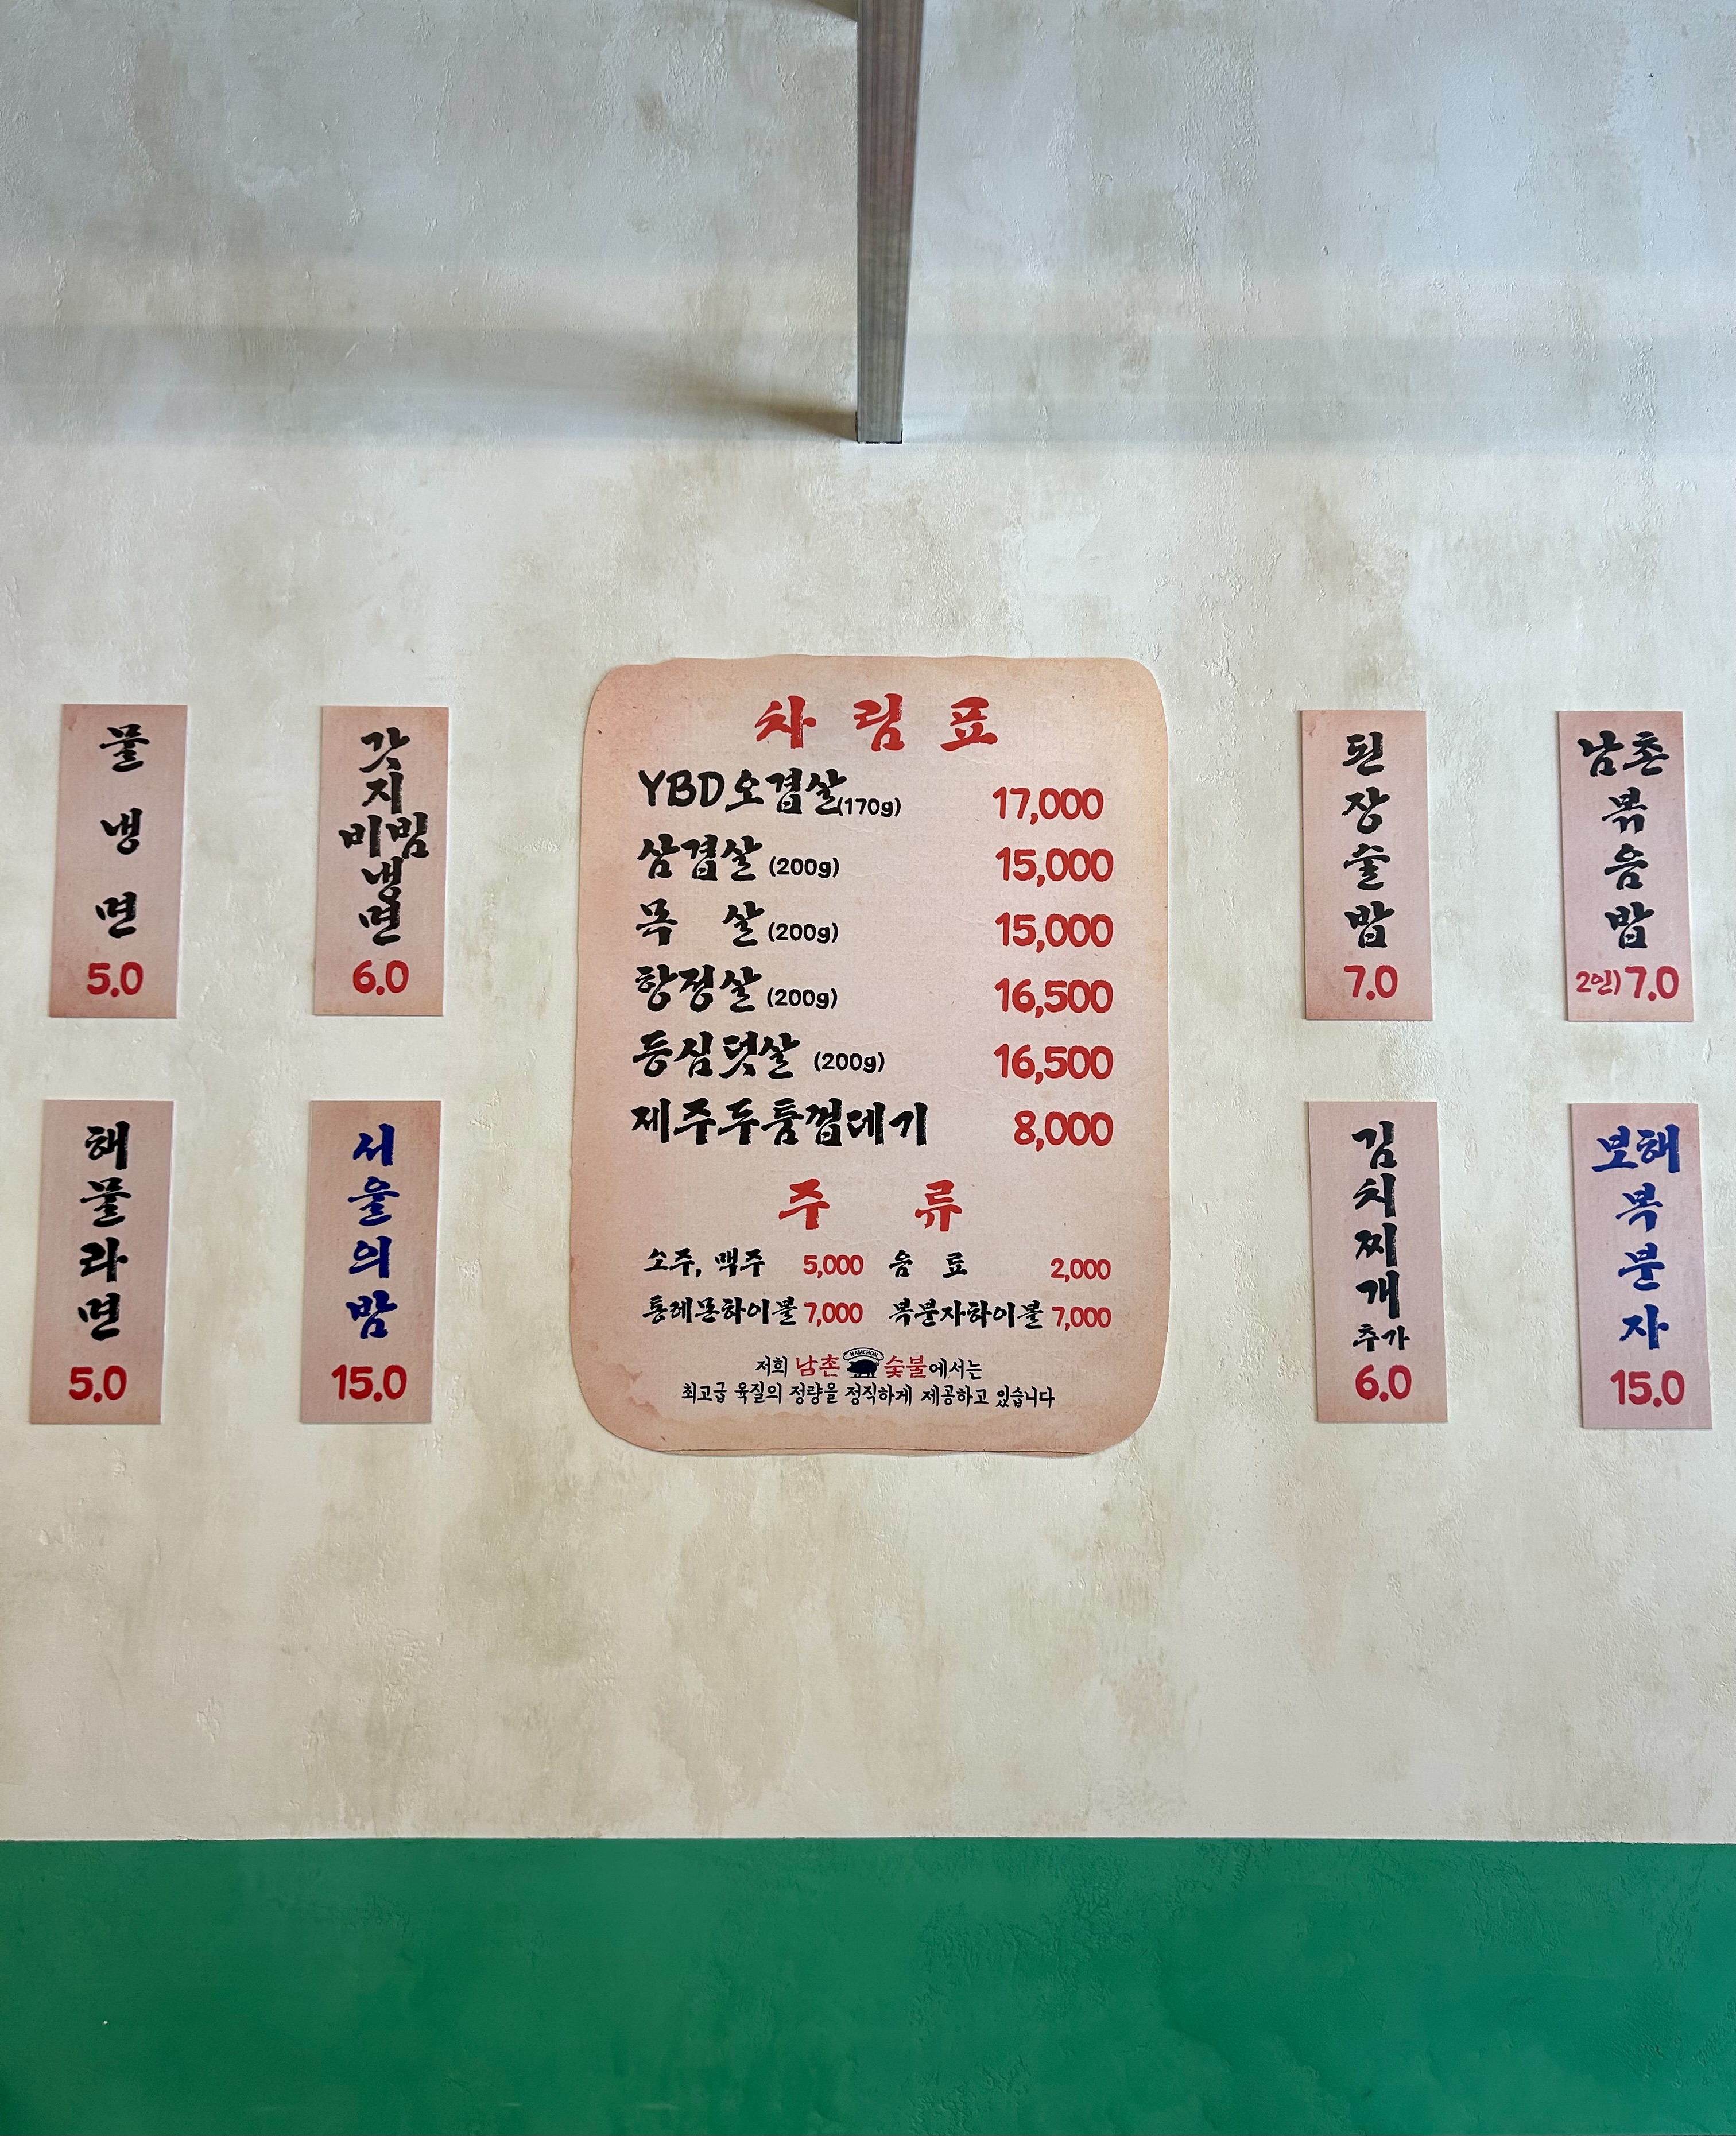 물냉면
5.0
갓지비빔냉면
6.0
해물라면
5.0
서울의밤
15.0
차림표
YBD오겹살(170g) 17,000
삼겹살(200g) 15,000
목살(200g) 15,000
항정살(200g) 16,500
등심덧살(200g) 16,500
제주두툼껍데기 8,000
주류
소주, 맥주 5,000 음료 2,000
통레몬하이볼 7,000 복분자하이볼 7,000
저희 남촌 NAMCHON 숯불에서는
최고급 육질의 정량을 정직하게 제공하고 있습니다
된장술밥
7.0
남촌볶음밥
2인) 7.0
김치찌개
추가
6.0
보해복분자
15.0